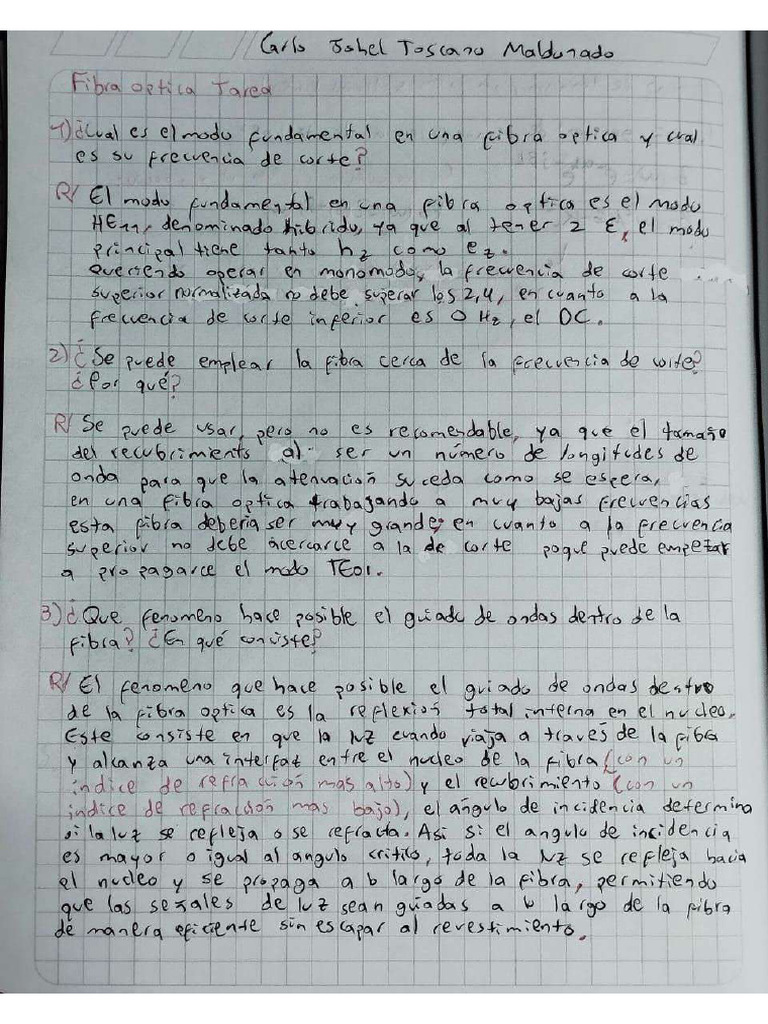 Carlo Johel Toscano Maldonado
Fibra optica Tarea
1) ¿Cual es el modo fundamental en una fibra optica y cual
es su frecuencia de corte?
R/ El modo fundamental en una fibra optica es el modo
HE11, denominado hibrido, ya que al tener 2 ε, el modo
principal tiene tanto hz como ez.
Queriendo operar en monomodo, la frecuencia de corte
superior normalizada no debe superar los 2,4, en cuanto a la
frecuencia de corte inferior es 0 Hz, el DC.
2) ¿Se puede emplear la fibra cerca de la frecuencia de corte?
¿Por qué?
R/ Se puede usar, pero no es recomendable, ya que el tamaño
del recubrimiento al ser un número de longitudes de
onda para que la atenuación suceda como se espera,
en una fibra optica trabagando a muy bajas frecuencias
esta fibra deberia ser muy grande, en cuanto a la frecuencia
superior no debe acercarce a la de corte poque puede empezar
a propagarce el modo TE01.
3) ¿Que fenomeno hace posible el guiado de ondas dentro de la
fibra? ¿En qué consiste?
R/ El fenomeno que hace posible el guiado de ondas dentro
de la fibra optica es la reflexión total interna en el nucleo.
Este consiste en que la luz cuando viaja a través de la fibra
y alcanza una interfaz entre el nucleo de la fibra (con un
índice de refracción mas alto) y el recubrimiento (con un
índice de refracción mas bajo), el ángulo de incidencia determina
si la luz se refleja o se refracta. Asi si el angulo de incidencia
es mayor o igual al angulo critico, toda la luz se refleja hacia
el nucleo y se propaga a lo largo de la fibra, permitiendo
que las señales de luz sean guiadas a lo largo de la fibra
de manera eficiente sin escapar al revestimiento.